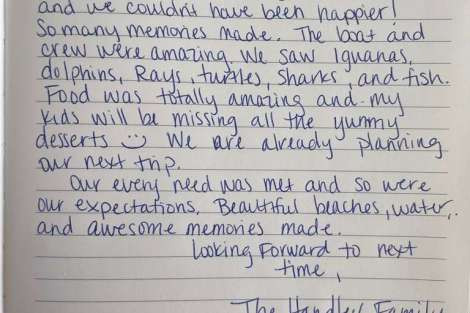 and we couldn't have been happier!
So many memories made. The boat and
crew were amazing. We saw Iguanas,
dolphins, Rays, turtles, Sharks, and fish.
Food was totally amazing and my
kids will be missing all the yummy
desserts :) We are already planning
our next trip.
Our every need was met and so were
our expectations. Beautiful beaches, water,
and awesome memories made.
Looking Forward to next
time,
The Family